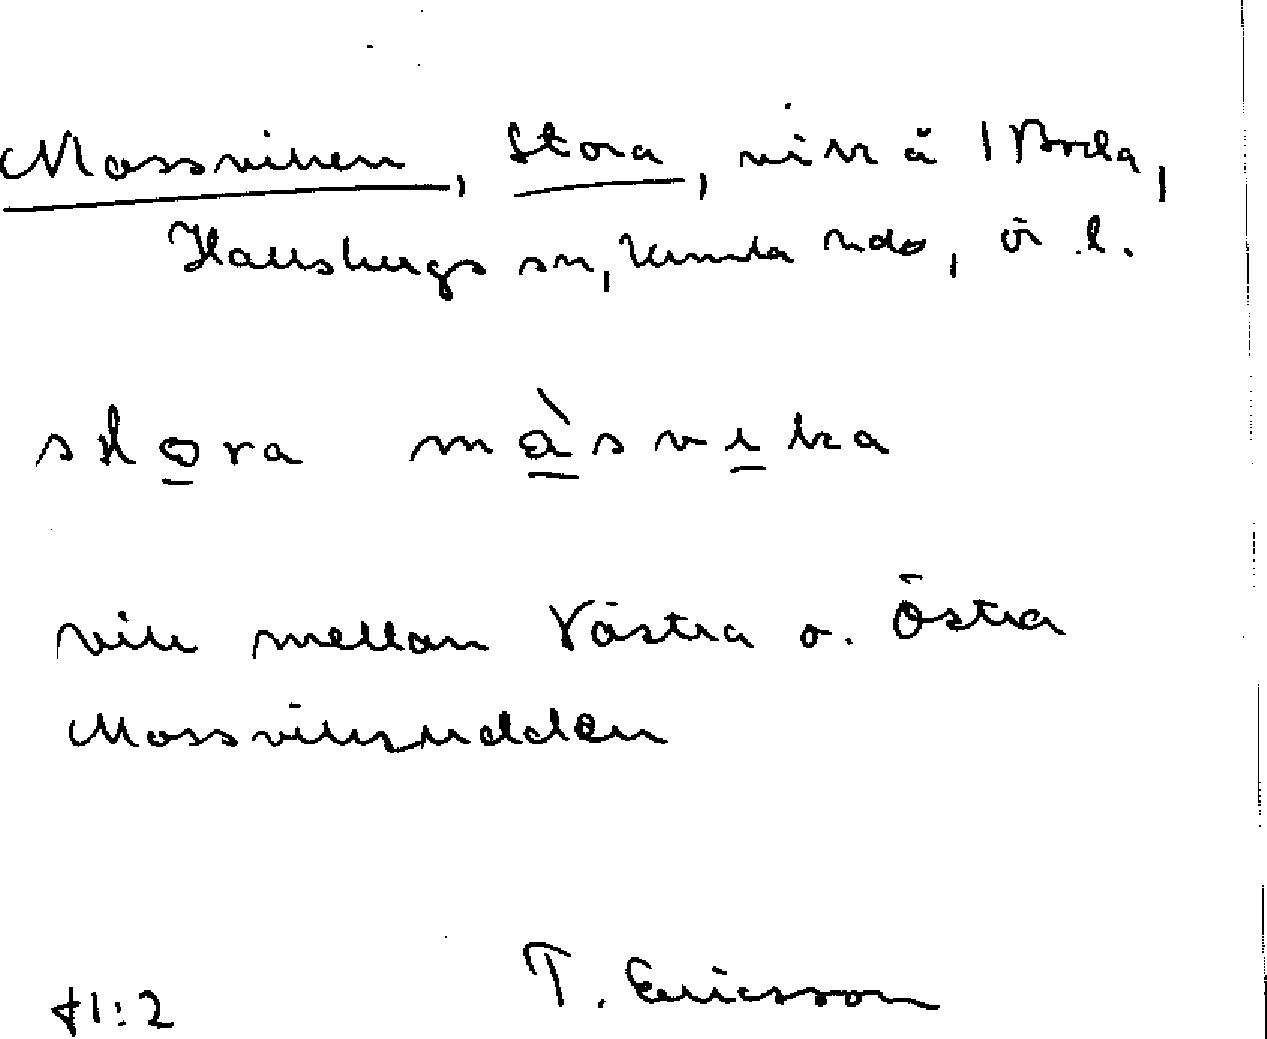 Mossviken, Stora, vik å 1 Boda,
Hallsbergs sn, Kumla hds, ö l.
stora måsvika
vik mellan Västra o. Östra
Mossviksudden
T. Ericsson
f1:2